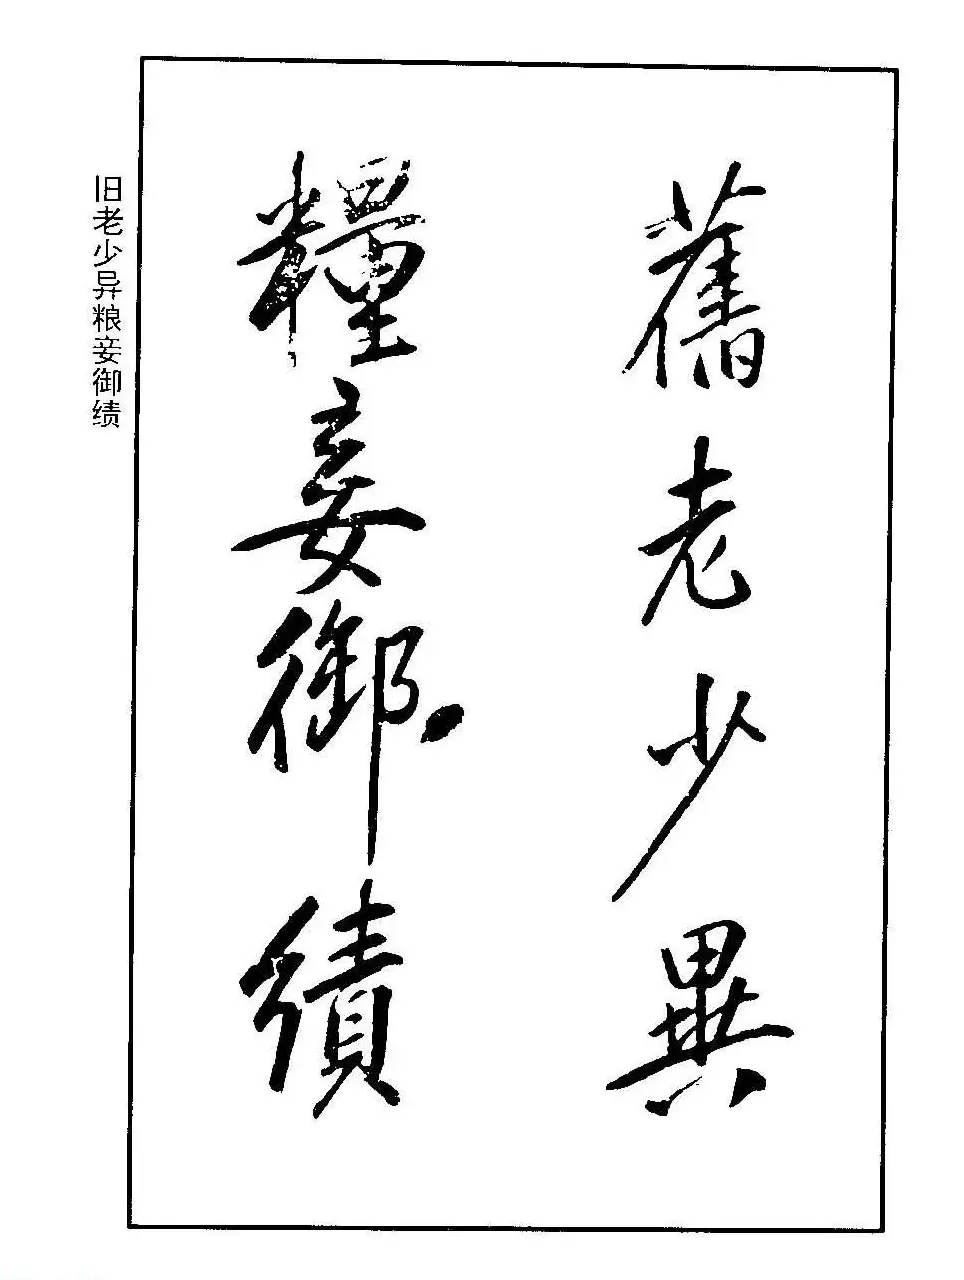 舊老少異
糧妾御績
旧老少异粮妾御绩